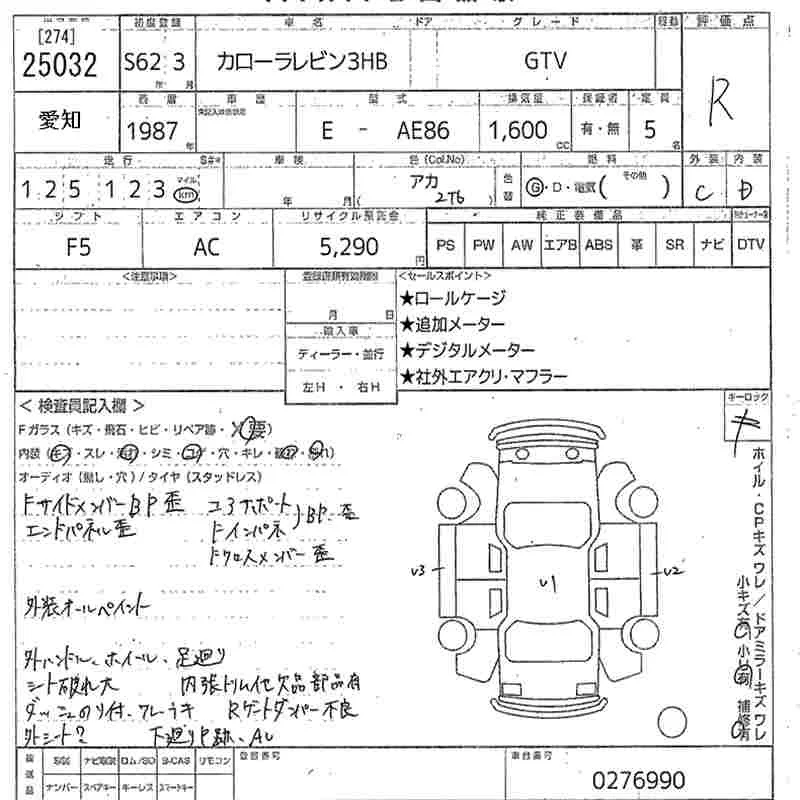 [274] 初度登録 車名 ドア グレード 評価点
25032 S62 3 カローラレビン3HB GTV
年 月
R
愛知 西暦 車歴 型式 排気量 定員
1987 年 E - AE86 1,600 CC 有・無 5 名
走行 車検 色(Col.No) 燃料 外装 内装
125123 マイル km 年 月 アカ 2T6 色替 G・D・電気( その他 ) C D
シフト エアコン リサイクル預託金 純正装備品
F5 AC 5,290 円 PS PW AW エアB ABS 革 SR ナビ DTV
<注意事項> <セールスポイント>
月 日
★ロールケージ
★追加メーター
輸入車
ディーラー・並行
★デジタルメーター
左H ・ 右H
★社外エアクリ・マフラー
キーロック
<検査員記入欄>
Fガラス(キズ・飛石・ヒビ・リペア跡・X要)
内装
オーディオ(無し・穴)/タイヤ(スタッドレス)
FサイドメンバーBP歪 コアサポート
エンドパネル歪 Fインパネ BP.歪
Fクロスメンバー歪
外装オールペイント
V3 V1 V2
外ハンドル、ホイール、足廻り
シート破れ大 内張トリム他欠品部品有
ダッシュのり付、ワレ・ウキ Rゲートダンパー不良
外シート? 下廻りP跡、AU
ホイル・CPキズワレ/ドアミラーキズワレ
小キズ有 小凹有 補修有
ナビ ロム/SD B-CAS リモコン 登録番号 車台番号
ナンバー スペアキー キーレス スマートキー
0276990